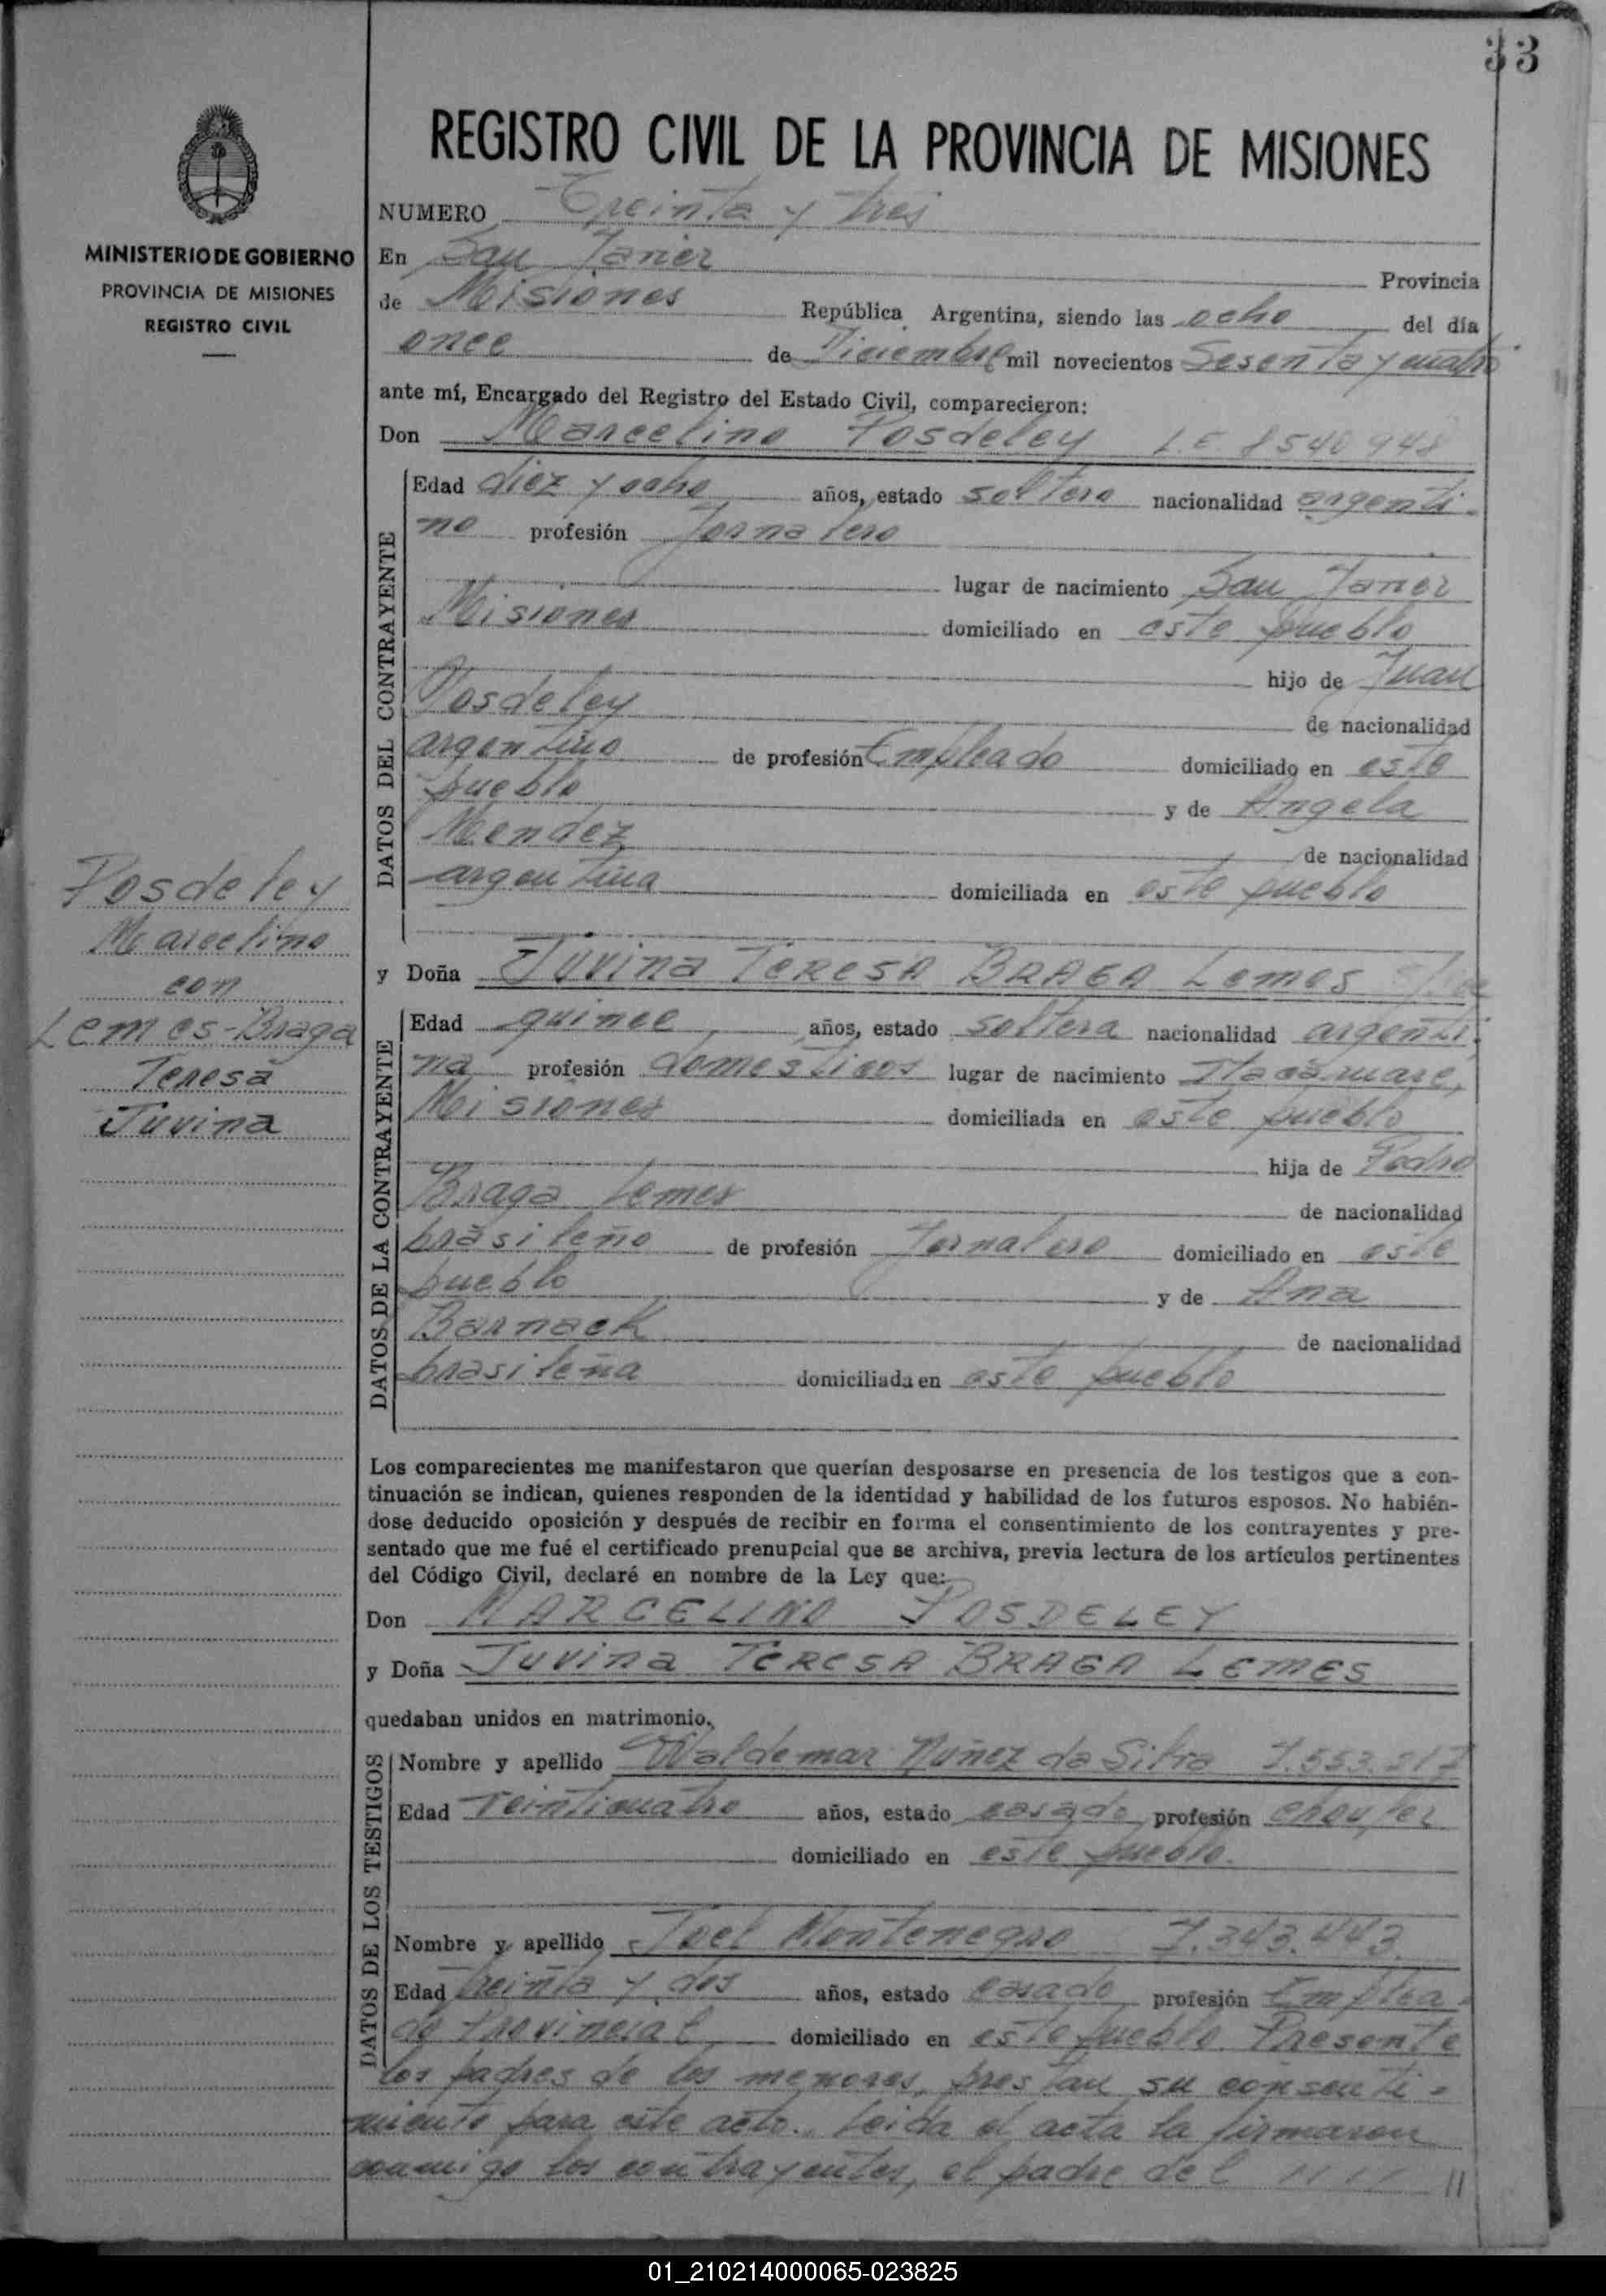 33
REGISTRO CIVIL DE LA PROVINCIA DE MISIONES
MINISTERIO DE GOBIERNO
PROVINCIA DE MISIONES
REGISTRO CIVIL
NUMERO Treinta y tres
En San Javier Provincia
de Misiones República Argentina, siendo las ocho del día
once de Diciembre mil novecientos Sesenta y cuatro
ante mí, Encargado del Registro del Estado Civil, comparecieron:
Don Marcelino Posdeley L.E. 8540948
DATOS DEL CONTRAYENTE
Edad diez y ocho años, estado soltero nacionalidad argenti-
no profesión Jornalero
lugar de nacimiento San Javier
Misiones domiciliado en este pueblo
hijo de Juan
Posdeley de nacionalidad
argentino de profesión Empleado domiciliado en este
pueblo y de Angela
Mendez de nacionalidad
argentina domiciliada en este pueblo
Posdeley
Marcelino
con
Lemes-Braga
Teresa
Juvina
y Doña Juvina TERESA BRAGA Lemes
DATOS DE LA CONTRAYENTE
Edad quince años, estado soltera nacionalidad argenti-
na profesión domesticos lugar de nacimiento Itacaruaré,
Misiones domiciliada en este pueblo
hija de Pedro
Braga Lemes de nacionalidad
brasileño de profesión Jornalero domiciliado en este
pueblo y de Ana
Barnack de nacionalidad
brasileña domiciliada en este pueblo
Los comparecientes me manifestaron que querían desposarse en presencia de los testigos que a con-
tinuación se indican, quienes responden de la identidad y habilidad de los futuros esposos. No habién-
dose deducido oposición y después de recibir en forma el consentimiento de los contrayentes y pre-
sentado que me fué el certificado prenupcial que se archiva, previa lectura de los artículos pertinentes
del Código Civil, declaré en nombre de la Ley que:
Don MARCELINO POSDELEY
y Doña Juvina TERESA BRAGA LEMES
quedaban unidos en matrimonio.
DATOS DE LOS TESTIGOS
Nombre y apellido Waldemar Nuñez da Silva
Edad veinticuatro años, estado casado profesión choufer
domiciliado en este pueblo.
Nombre y apellido Joel Montenegro 7.343.443.
Edad treinta y dos años, estado casado profesión Emplea-
do Provincial domiciliado en este pueblo. Presente
los padres de los menores, prestan su consenti-
miento para este acto. Leida el acta la firmaron
conmigo los contrayentes, el padre del //
01_210214000065-023825